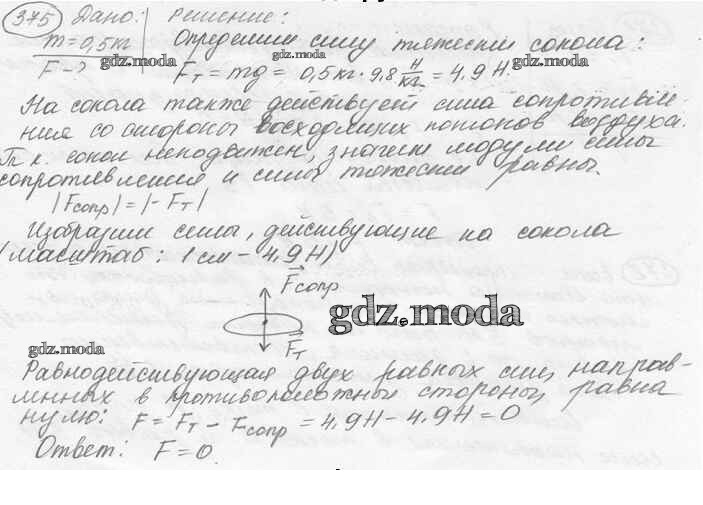 375 Дано: Решение:
m = 0,5 кг Определим силу тяжести сокола:
F - ? gdz.moda Fт = mg = 0,5 кг · 9,8 Н/кг = 4,9 Н. gdz.moda
На сокола также действует сила сопротивле-
ния со стороны восходящих потоков воздуха.
Т.к. сокол неподвижен, значит модули силы
сопротивления и силы тяжести равны.
|Fсопр| = |-Fт|
Изобразим силы, действующие на сокола
(масштаб: 1 см - 4,9 Н)
Fсопр
gdz.moda
Fт
gdz.moda
Равнодействующая двух равных сил, направ-
ленных в противоположные стороны, равна
нулю: F = Fт - Fсопр = 4,9Н - 4,9Н = 0
Ответ: F = 0.